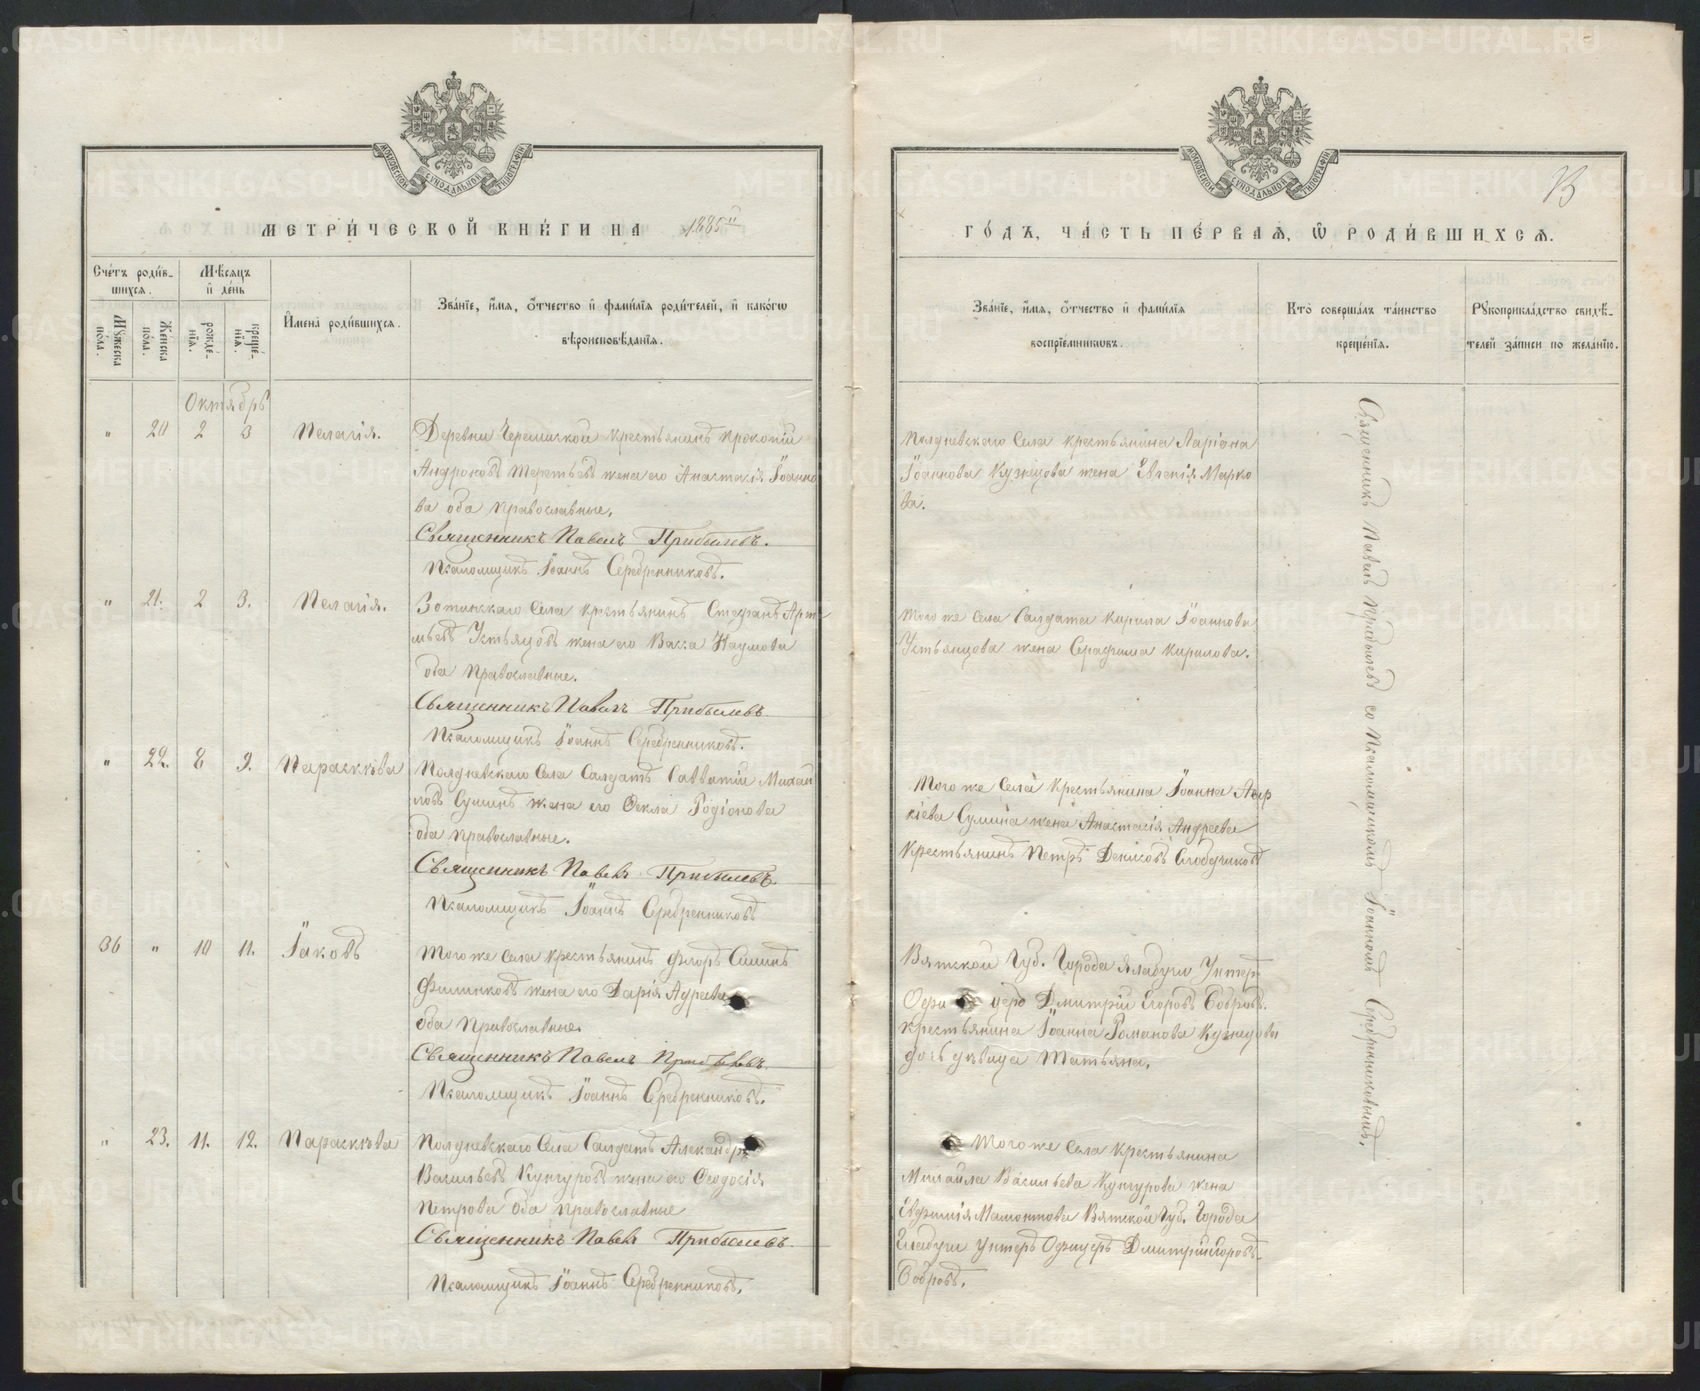 МОСКОВСКОЙ СѴНОДАЛЬНОЙ ТИПОГРАФІИ
МЕТРИ́ЧЕСКОЙ КНИ́ГИ НА 1885й
Сче́тъ роди́в-
шихсѧ.
Мꙋжеска по́ла.
Же́нска по́ла.
Мѣ́сѧцъ
и҆ де́нь
рожде́-
нїѧ.
креще́-
нїѧ.
И҆мена̀ роди́вшихсѧ.
Зва́нїе, и҆́мѧ, ѻ҆́тчество и҆ фамѝлїѧ роди́телей, и҆ како́гѡ
вѣроисповѣ́данїѧ.
Октябрь
" 20 2 3 Пелагія.
Деревни Черемиской крестьянинъ Прокопій
Андроновъ Терентьевъ жена его Анастасія Іоанно
ва оба православные.
Священникъ Павелъ Прибылевъ.
Псаломщикъ Іоаннъ Серебренниковъ.
" 21. 2 3. Пелагія.
Зотинскаго Села крестьянинъ Стефанъ Арте
мьевъ Устьянцовъ жена его Васса Наумова
оба православные.
Священникъ Павелъ Прибылевъ
Псаломщикъ Іоаннъ Серебренниковъ.
" 22. 8 9. Параскѣва
Полдневскаго Села Солдатъ Савватій Михаи
ловъ Суминъ жена его Ѳекла Родіонова
оба православные.
Священникъ Павелъ Прибылевъ.
Псаломщикъ Іоаннъ Серебренниковъ
36 " 10 11. Іаковъ
Того же села крестьянинъ Флоръ Симинъ
Филинковъ жена его Дарія Адреева
оба православные.
Священникъ Павелъ Прибылевъ.
Псаломщикъ Іоаннъ Серебренниковъ.
" 23. 11. 12. Параскѣва
Полдневскаго Села Солдатъ Александръ
Васильевъ Кунгуровъ жена его Ѳеодосія
Петрова оба православные
Священникъ Павелъ Прибылевъ.
Псаломщикъ Іоаннъ Серебренниковъ.
МОСКОВСКОЙ СѴНОДАЛЬНОЙ ТИПОГРАФІИ
ГО́ДЪ, ЧА́СТЬ ПЕ́РВАѦ, Ѽ РОДИ́ВШИХСѦ.
Зва́нїе, и҆́мѧ, ѻ҆́тчество и҆ фамѝлїѧ
воспрїе́мникѡвъ.
Кто̀ соверша́лъ та́инство
креще́нїѧ.
Рꙋкоприкла́дство свидѣ́-
телей за́писи по жела́нїю.
Полдневскаго Села крестьянина Ларіона
Іоаннова Кузнецова жена Евгенія Марко
ва.
Того же села Солдата Кирила Іоаннова
Устьянцова жена Серафима Кирилова.
Того же Села Крестьянина Іоанна Авер
кіева Сумина жена Анастасія Андреева
Крестьянинъ Петръ Денисовъ Слободчиковъ
Вятской Губ. Города Алабуги Унтер-
Офицеръ Дмитрій Егоровъ Бобровъ.
крестьянина Іоанна Романова Кузнецова
дочь дѣвица Татьяна.
Того же Села Крестьянина
Михаила Васильева Кунгурова жена
Евфимія Мамонтова Вятской Губ. Города
Елабуги Унтеръ Офицеръ Дмитрій Егоровъ
Бобровъ.
Священникъ Павелъ Прибылевъ со Псаломщикомъ Іоанномъ Серебренниковымъ.
METRIKI.GASO-URAL.RU